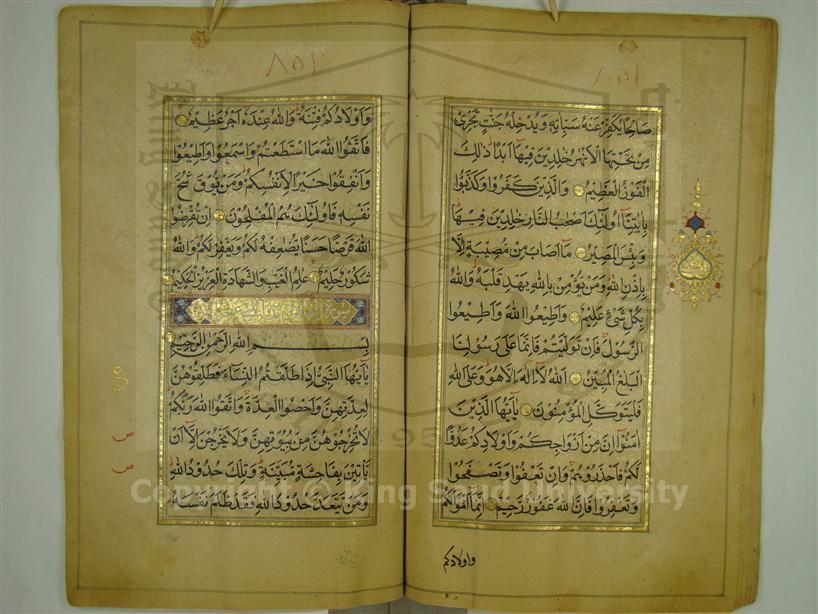 ٨٥١
صالحا يكفر عنه سيئاته ويدخله جنت تجرى
من تحتها الانهر خلدين فيها ابدا ذلك
الفوز العظيم والذين كفروا وكذبوا
بايتنا اولئك اصحب النار خلدين فيها
وبئس المصير ما اصاب من مصيبة الا
باذن الله ومن يؤمن بالله يهد قلبه والله
بكل شئ عليم واطيعوا الله واطيعوا
الرسول فان توليتم فانما على رسولنا
البلغ المبين الله لا اله الا هو وعلى الله
فليتوكل المؤمنون يايها الذين
امنوا ان من ازواجكم واولادكم عدوا
لكم فاحذروهم وان تعفوا وتصفحوا
وتغفروا فان الله غفور رحيم انما اموالكم
واولادكم
٨٥٢
واولادكم فتنة والله عنده اجر عظيم
فاتقوا الله ما استطعتم واسمعوا واطيعوا
وانفقوا خيرا لانفسكم ومن يوق شح
نفسه فاولئك هم المفلحون ان تقرضوا
الله قرضا حسنا يضعفه لكم ويغفر لكم والله
شكور حليم علم الغيب والشهادة العزيز الحكيم
بسم الله الرحمن الرحيم
يايها النبى اذا طلقتم النساء فطلقوهن
لعدتهن واحصوا العدة واتقوا الله ربكم
لا تخرجوهن من بيوتهن ولا يخرجن الا ان
ياتين بفاحشة مبينة وتلك حدود الله
ومن يتعد حدود الله فقد ظلم نفسه
ص
ص
Copyright © King Saud University
1957